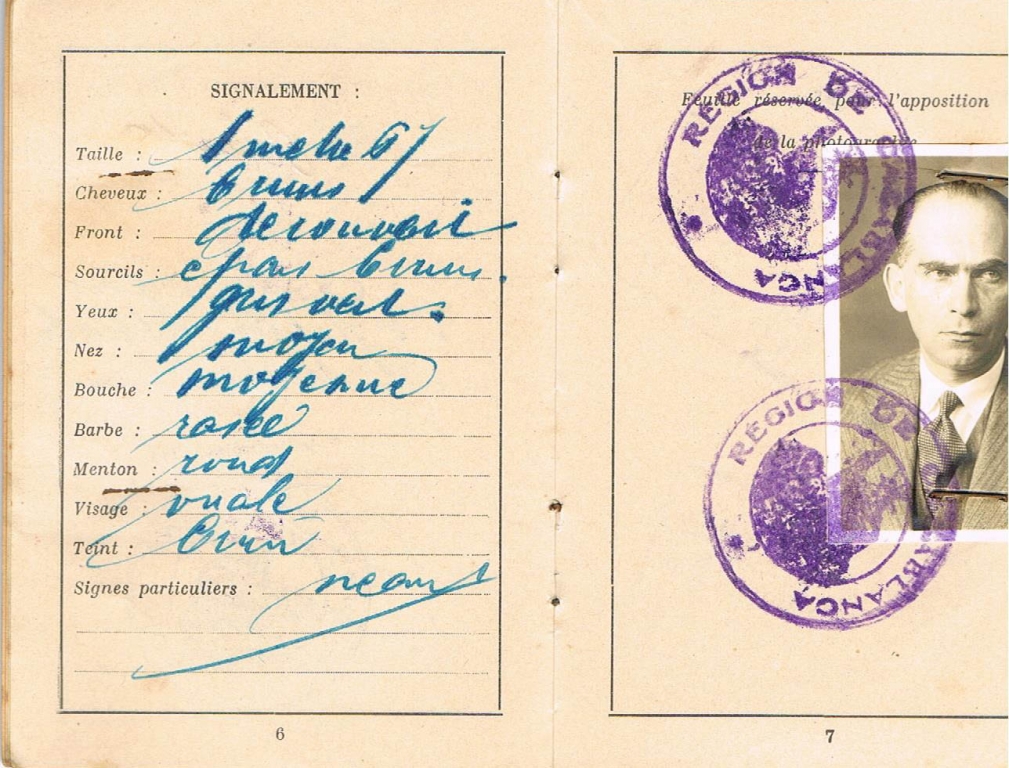 SIGNALEMENT :
Taille : 1 metre 67
Cheveux : bruns
Front : decouvert
Sourcils : epais bruns.
Yeux : gris vert.
Nez : moyen
Bouche : moyenne
Barbe : rasée
Menton : rond
Visage : ovale
Teint : brun
Signes particuliers : neant
6
Feuille réservée pour l'apposition
de la photographie
RÉGION DE CASABLANCA
RÉGION DE CASABLANCA
7